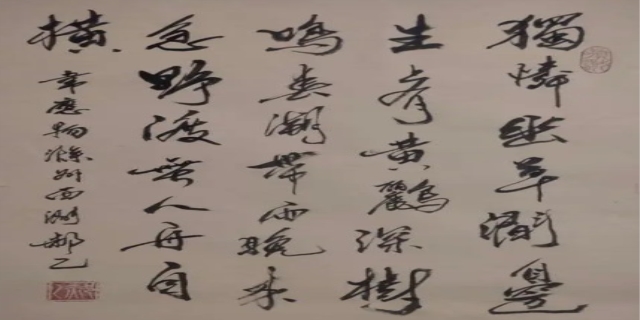 獨憐幽草澗邊
生上有黃鸝深樹
鳴春潮帶雨晚來
急野渡無人舟自
橫
韋應物滁州西澗